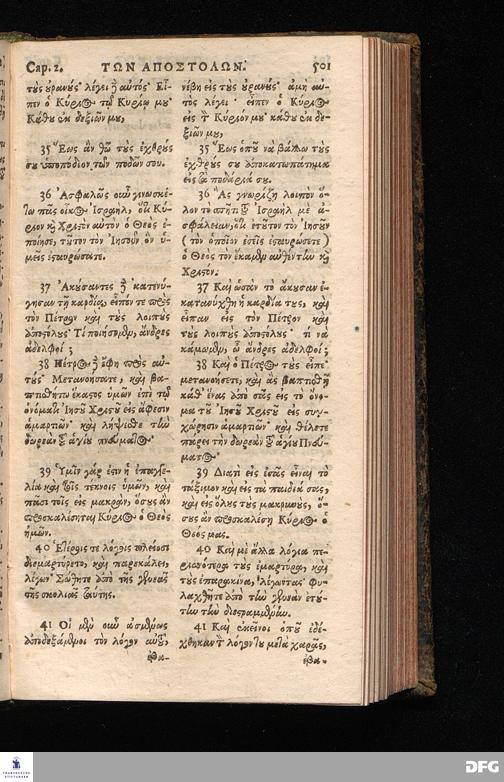 Cap. 2. ΤΩΝ ΑΠΟΣΤΟΛΩΝ. 501
τοὺς οὐρανούς· λέγει δὲ αὐτός· Εἶ-
πεν ὁ Κύριος τῷ Κυρίῳ μου·
Κάθου ἐκ δεξιῶν μου,
35 Ἕως ἂν θῶ τοὺς ἐχθρούς
σου ὑποπόδιον τῶν ποδῶν σου.
36 Ἀσφαλῶς οὖν γινωσκέ-
τω πᾶς οἶκος Ἰσραὴλ, ὅτι Κύ-
ριον καὶ Χριστὸν αὐτὸν ὁ Θεὸς ἐ-
ποίησε, τοῦτον τὸν Ἰησοῦν ὃν ὑ-
μεῖς ἐσταυρώσατε.
37 Ἀκούσαντες δὲ κατενύ-
γησαν τῇ καρδίᾳ, εἶπόν τε πρὸς
τὸν Πέτρον καὶ τοὺς λοιποὺς
ἀποστόλους· Τί ποιήσομεν, ἄνδρες
ἀδελφοί;
38 Πέτρος δὲ ἔφη πρὸς αὐ-
τούς· Μετανοήσατε, καὶ βα-
πτισθήτω ἕκαστος ὑμῶν ἐπὶ τῷ
ὀνόματι Ἰησοῦ Χριστοῦ εἰς ἄφεσιν
ἁμαρτιῶν· καὶ λήψεσθε τὴν
δωρεὰν τοῦ ἁγίου πνεύματος.
39 Ὑμῖν γάρ ἐστιν ἡ ἐπαγγε-
λία καὶ τοῖς τέκνοις ὑμῶν, καὶ
πᾶσι τοῖς εἰς μακρὰν, ὅσους ἂν
προσκαλέσηται Κύριος ὁ Θεὸς
ἡμῶν.
40 Ἑτέροις τε λόγοις πλείοσι
διεμαρτύρετο, καὶ παρεκάλει,
λέγων· Σώθητε ἀπὸ τῆς γενεᾶς
τῆς σκολιᾶς ταύτης.
41 Οἱ μὲν οὖν ἀσμένως
ἀποδεξάμενοι τὸν λόγον αὐτοῦ,
ἐβα-
νέβη εἰς τοὺς οὐρανούς· ἀμὴ αὐ-
τὸς λέγει· εἶπεν ὁ Κύριος
εἰς τὸν Κύριόν μου· κάθου ἐκ δε-
ξιῶν μου,
35 Ἕως ὁποῦ νὰ βάλλω τοὺς
ἐχθρούς σου ἀποκατωπάτημα
εἰς τὰ ποδάριά σου.
36 Ἂς γνωρίζῃ λοιπὸν ὅ-
λον τὸ σπῆτι τοῦ Ἰσραὴλ μὲ ἀ-
σφάλειαν, ὅτι ἐτοῦτον τὸν Ἰησοῦν
(τὸν ὁποῖον ἐσεῖς ἐσταυρώσετε)
ὁ Θεὸς τὸν ἔκαμεν αὐθέντην καὶ
Χριστόν.
37 Καὶ ὡσὰν τὸ ἄκουσαν ἐ-
κατανύχθη ἡ καρδία τους, καὶ
εἶπαν εἰς τὸν Πέτρον καὶ
τοὺς λοιποὺς ἀποστόλους· τί νὰ
κάμωμεν, ὦ ἄνδρες ἀδελφοί;
38 Καὶ ὁ Πέτρος τοὺς εἶπε·
μετανοήσετε, καὶ ἂς βαπτισθῇ
καθ' ἕνας ἀπὸ σᾶς εἰς τὸ ὄνο-
μα τοῦ Ἰησοῦ Χριστοῦ εἰς συγ-
χώρησιν ἁμαρτιῶν· καὶ θέλετε
πάρει τὴν δωρεὰν τοῦ ἁγίου Πνεύ-
ματος.
39 Διατὶ εἰς ἐσᾶς εἶναι τὸ
τάξιμον καὶ εἰς τὰ παιδία σας,
καὶ εἰς ὅλους τοὺς μακρινοὺς, ὅ-
σους ἂν προσκαλέσῃ Κύριος ὁ
Θεός μας.
40 Καὶ μὲ ἄλλα λόγια πε-
ρισσότερα τοὺς ἐμαρτύρα, καὶ
τοὺς ἐπαρακίνα, λέγωντας· Φυ-
λαχθῆτε ἀπὸ τὴν γενεὰν ἐτού-
την τὴν διεστραμμένην.
41 Καὶ ἐκεῖνοι ὁποῦ ἐδέ-
χθηκαν τὸν λόγον του μετὰ χαρᾶς,
ἐβα-
DFG